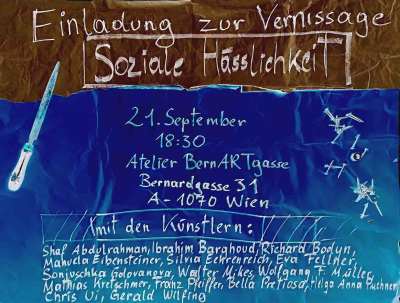 Einladung zur Vernissage
Soziale Hässlichkeit
21. September
18:30
Atelier BernARTgasse
Bernardgasse 31
A-1070 Wien
mit den Künstlern:
Shaf Abdulrahman, Ibrahim Barghoud, Richard Bodyn,
Manuela Eibensteiner, Silvia Eehrenreich, Eva Fellner,
Sonjuschka Golovanova, Walter Mikes, Wolfgang F. Müller,
Mathias Kretschmer, Franz Pfeiffer, Bella Pretiosa, Helga Anna Puthner,
Chris Ui, Gerald Wilfing